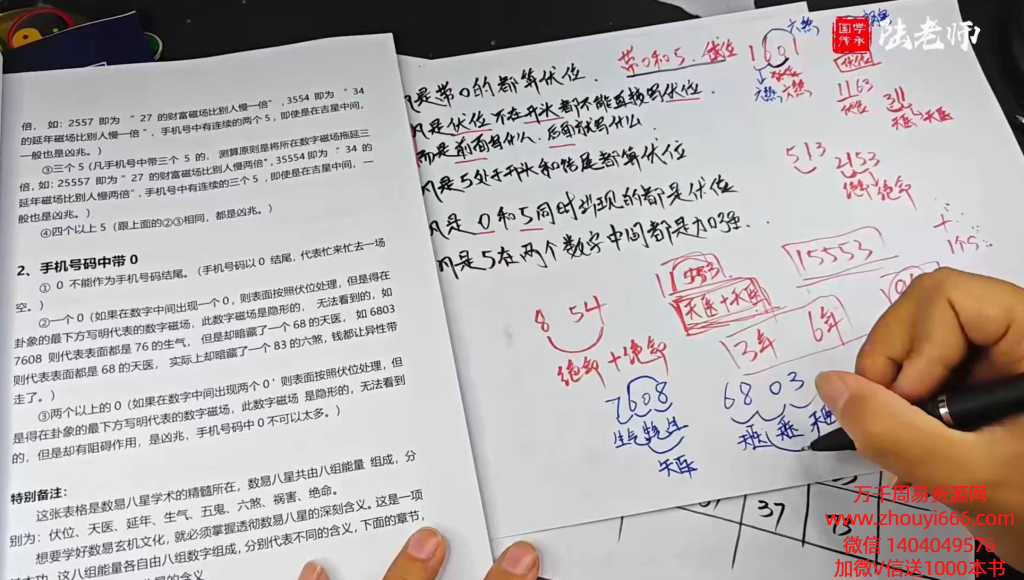 倍， 如：2557 即为 “ 27 的财富磁场比别人慢一倍”,3554 即为 “ 34
的延年磁场比别人慢一倍”，手机号中有连续的两个 5，即使是在吉星中间，
一般也是凶兆。）
③三个 5（凡手机号中带三个 5 的， 测算原则是将所在数字磁场拖延三
倍，如：25557 即为“ 27 的财富磁场比别人慢两倍”,35554 即为“ 34 的
延年磁场比别人慢两倍”，手机号中有连续的三个 5 ，即使是在吉星中间，一
般也是凶兆。）
④四个以上 5（跟上面的②③相同，都是凶兆。）
2、手机号码中带 0
① 0 不能作为手机号码结尾。（手机号码以 0 结尾，代表忙来忙去一场
空。）
②一个 0（如果在数字中间出现一个 0，则表面按照伏位处理，但是得在
卦象的最下方写明代表的数字磁场，此数字磁场是隐形的， 无法看到的，如
7608 则代表表面都是 76 的生气， 但是却暗藏了一个 68 的天医， 如 6803
则代表表面都是 68 的天医， 实际上却暗藏了一个 83 的六煞，钱都让异性带
走了。）
③两个以上的 0（如果在数字中间出现两个 0 ' 则表面按照伏位处理，但
是得在卦象的最下方写明代表的数字磁场，此数字磁场 是隐形的，无法看到
的，但是却有阻碍作用，是凶兆，手机号码中 0 不可以太多。）
特别备注：
这张表格是数易八星学术的精髓所在，数易八星共由八组能量 组成，分
别为：伏位、天医、延年、生气、五鬼、六煞、祸害、绝命。
想要学好数易玄机文化，就必须掌握透彻数易八星的深刻含义。这是一项
基本功，这八组能量各自由八组数字组成，分别代表不同的含义，下面的章节，
凡是带0的都算伏位．
带0和5．伏位
凡是伏位不在开头都不能直接写伏位．
而是前面有什么．后面就写什么．
凡是5处于开头和结尾都算伏位
凡是 0和5同时出现的都是伏位
凡是5在两个数字中间都是加强．
1601
六煞
六煞 六煞
伏位
1163
伏位
311
天医 天医
513
2153
绝命 绝命
+
1个5
11553
天医+天医
15553
3年 6年
8 54
绝命+绝命
7608
生气 生气 生气
天医
6803
天医 天医 天医
37
73
国学
传承
陆老师
万千周易资源网
www.zhouyi666.com
微信 1404049576
加微V信送1000本书